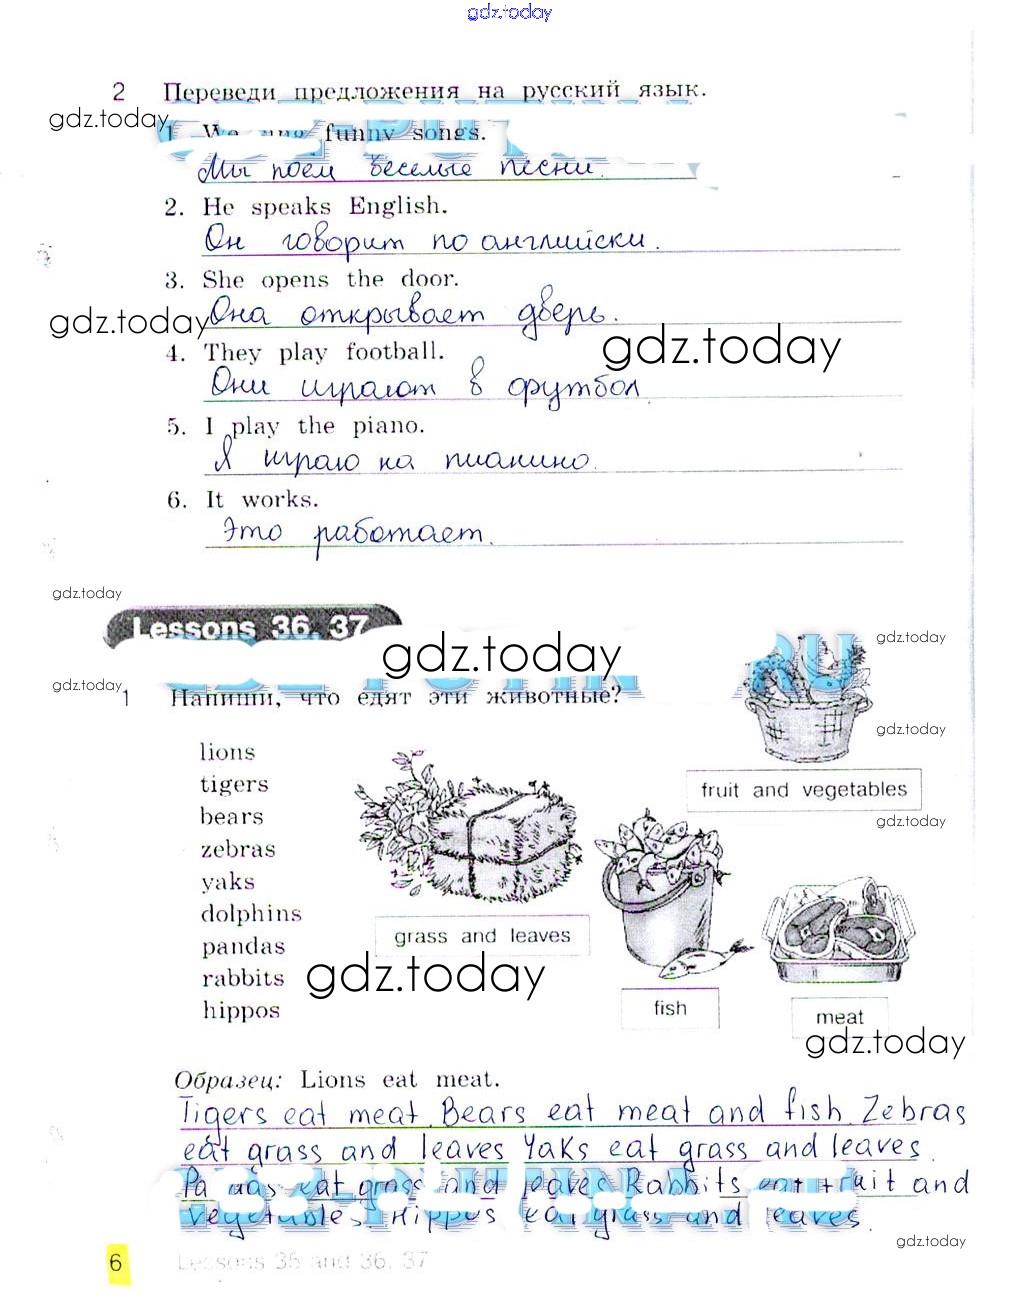 gdz.today
2 Переведи предложения на русский язык.
gdz.today
1 We sing funny songs.
Мы поём веселые песни.
2. He speaks English.
Он говорит по английски.
3. She opens the door.
gdz.today
Она открывает дверь.
gdz.today
4. They play football.
Они играют в футбол.
5. I play the piano.
Я играю на пианино.
6. It works.
Это работает.
gdz.today
Lessons 36, 37
gdz.today
gdz.today
gdz.today
1 Напиши, что едят эти животные?
gdz.today
lions
tigers
bears
zebras
yaks
dolphins
pandas
rabbits
hippos
fruit and vegetables
gdz.today
grass and leaves
gdz.today
fish
meat
gdz.today
Образец: Lions eat meat.
Tigers eat meat. Bears eat meat and fish. Zebras
eat grass and leaves Yaks eat grass and leaves.
eat grass and leaves Rabbits eat fruit and
vegetables. Hippos eat grass and leaves.
gdz.today
6 Lessons 35 and 36, 37